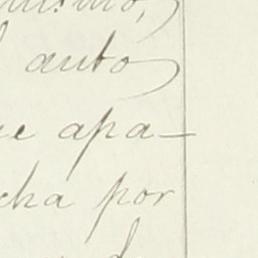 mismo,
auto
ue apa-
cha por